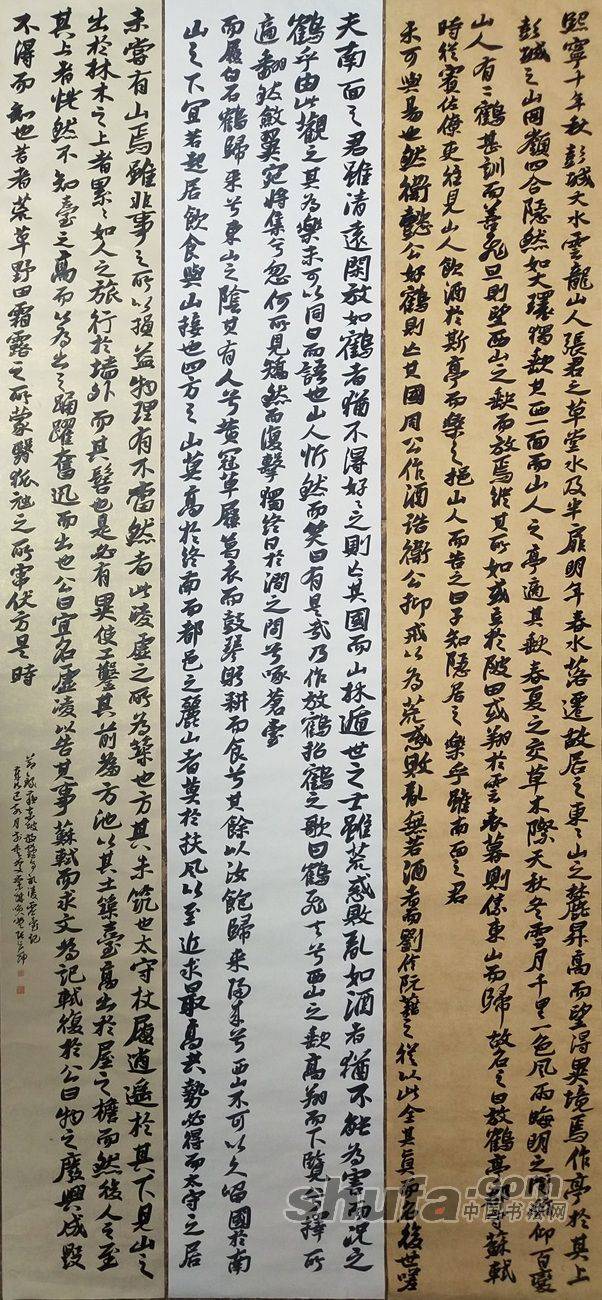 熙寧十年秋彭城大水雲龍山人張君之草堂水及半扉明年春水落遷故居之東之山之麓昇高而望得異境焉作亭於其上
彭城之山岡嶺四合隱然如大環獨缺其西一面而山人之亭適其缺春夏之交草木際天秋冬雪月千里一色風雨晦明之間俯仰百變
山人有二鶴甚訓而善飛旦則望西山之缺而放焉縱其所如或立於陂田或翔於雲表暮則傃東山而歸故名之曰放鶴亭郡守蘇軾
時從賓佐僚吏往見山人飲酒於斯亭而樂之挹山人而告之曰子知隱居之樂乎雖南面之君
未可與易也然衛懿公好鶴則亡其國周公作酒誥衛公抑戒以為荒惑敗亂無若酒者而劉伶阮籍之徒以此全其真而名後世嗟
夫南面之君雖清遠閑放如鶴者猶不得好之則亡其國而山林遁世之士雖荒惑敗亂如酒者猶不能為害而況之
鶴乎由此觀之其為樂未可以同日而語也山人忻然而笑曰有是哉乃作放鶴招鶴之歌曰鶴飛去兮西山之缺高翔而下覽兮擇所
適翻然斂翼宛將集兮忽何所見矯然而復擊獨終日於澗之間兮啄蒼雲
而履白石鶴歸來兮東山之陰其有人兮黃冠草履葛衣而鼓琴躬耕而食兮其餘以汝飽歸來歸來兮西山不可以久留國於南
山之下宜若起居飲食與山接也四方之山莫高於終南而都邑之麗山者莫於扶風以至近求最高其勢必得而太守之居
未嘗有山焉雖非事之所以損益物理有不當然者此凌虛之所為築也方其未筑也太守杖履逍遙於其下見山之
出於林木之上者累々如人之旅行於墻外而其髻也是必有異使工鑿其前為方池以其土築臺高出於屋之檐而然後人之至
其上者恍然不知臺之高而以為山之踊躍奮迅而出也公曰宜名虛凌以告其事蘇軾而求文為記軾復於公曰物之廢興成毀
不得而知也昔者荒草野田霜露之所蒙翳狐虺之所竄伏方是時
shufa.com
中国书法网